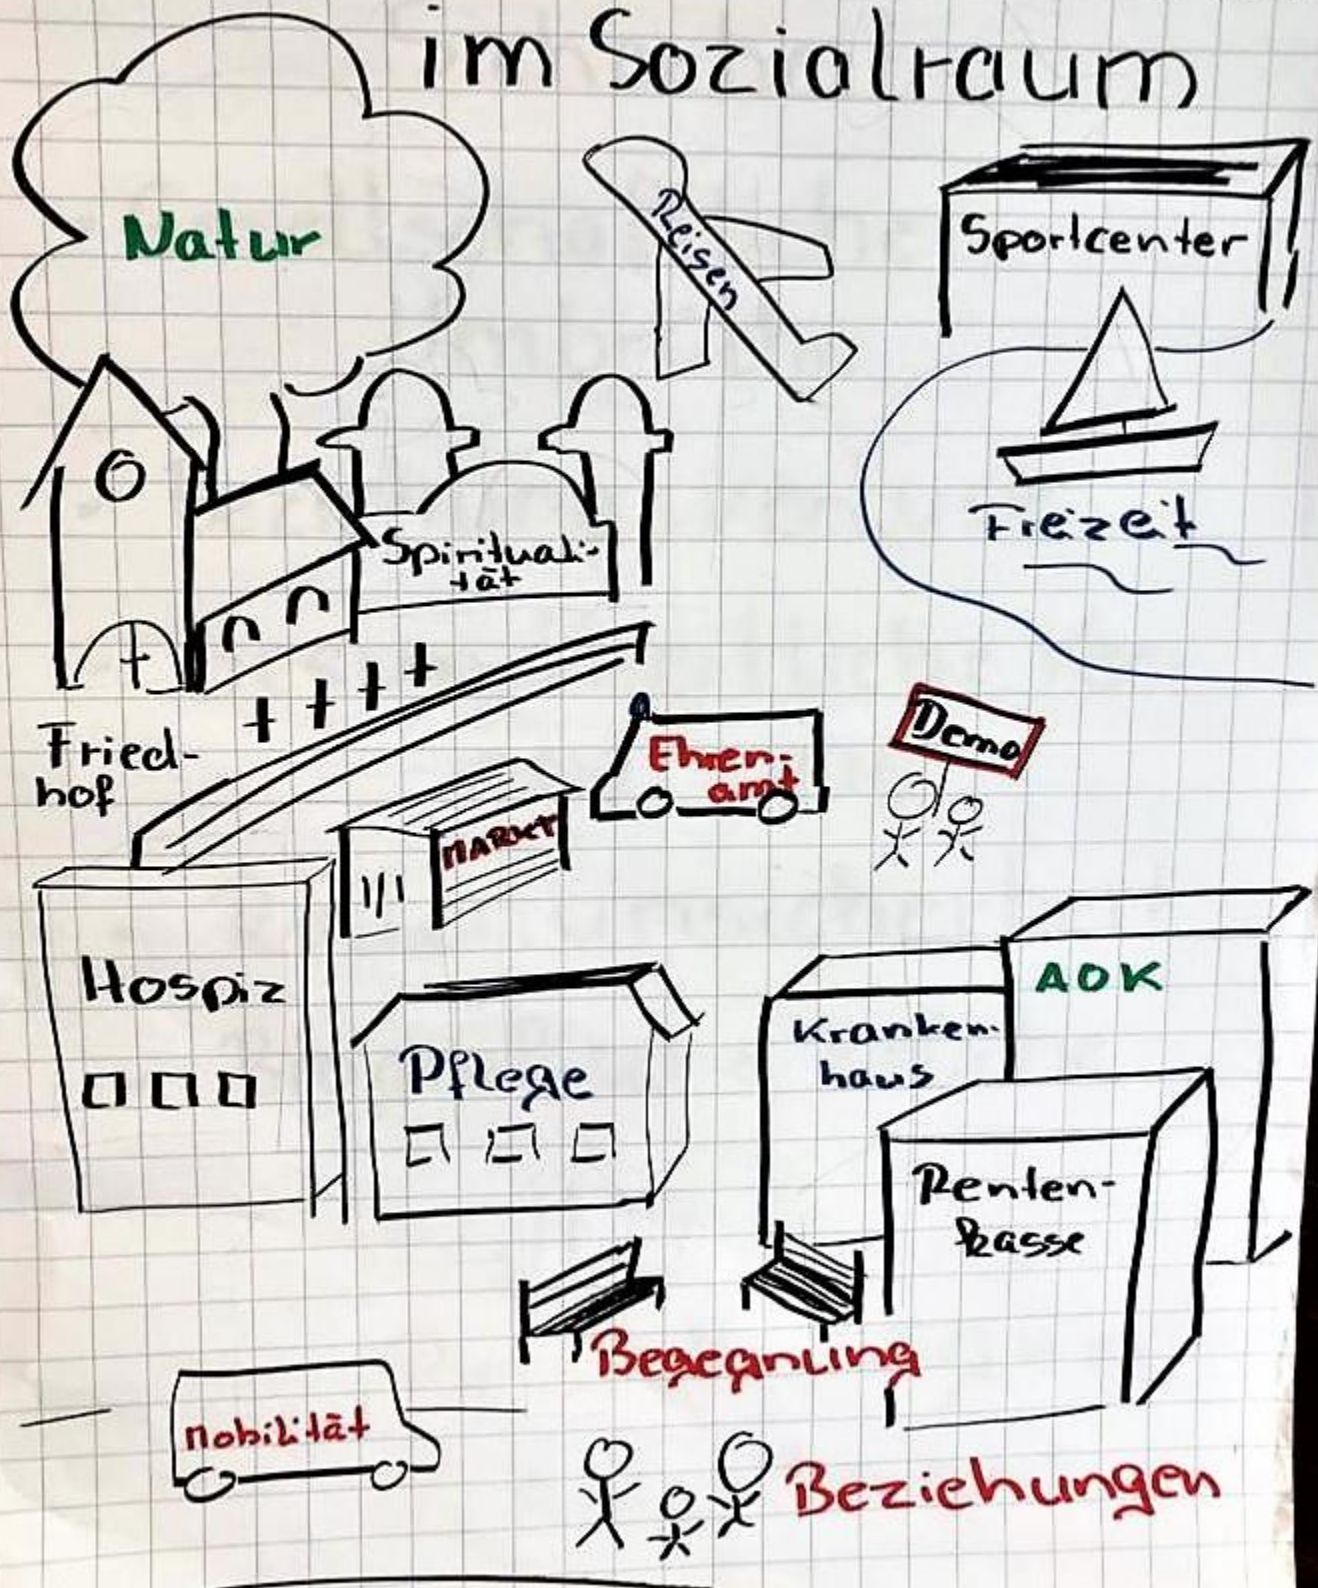 im Sozialraum
Natur
Reisen
Sportcenter
Freizeit
Spirituali-
tät
Fried-
hof
Ehren-
amt
Demo
MARKT
Hospiz
Pflege
Kranken-
haus
AOK
Renten-
kasse
Begegnung
Mobilität
Beziehungen